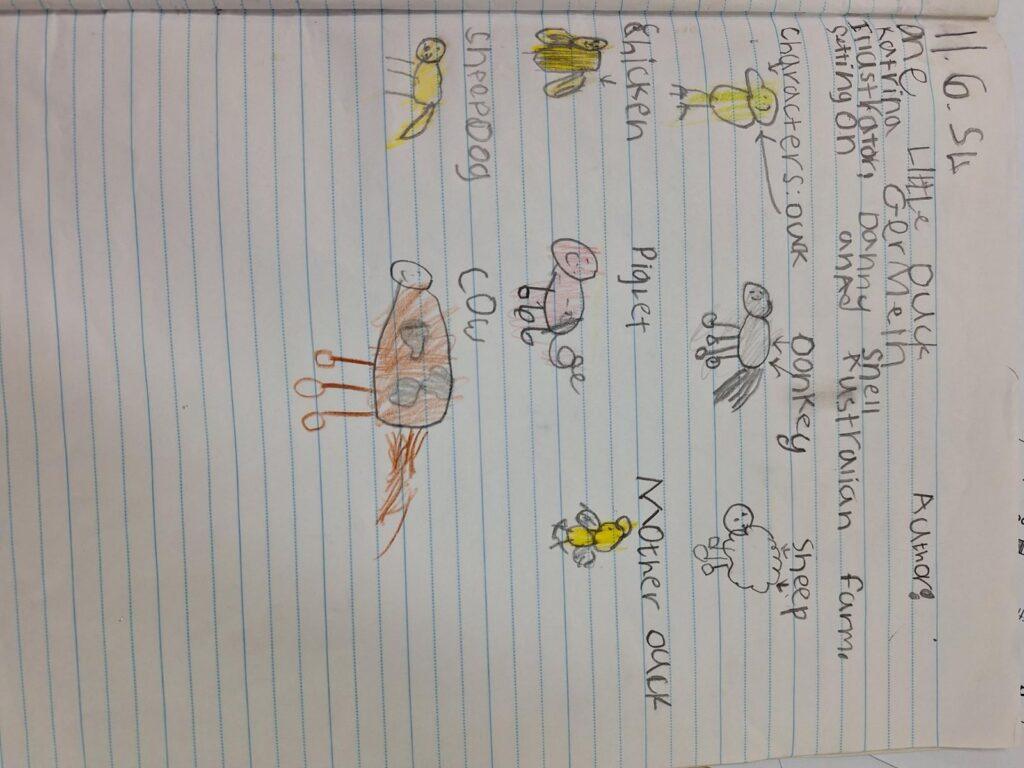 11.6.54
One Little Duck Author:
Katrina GerMeln
Illustrator, Danny Snell
setting on an Austrailian farm.
Characters: Duck Donkey Sheep
Chicken Piglet Mother Duck
Cow